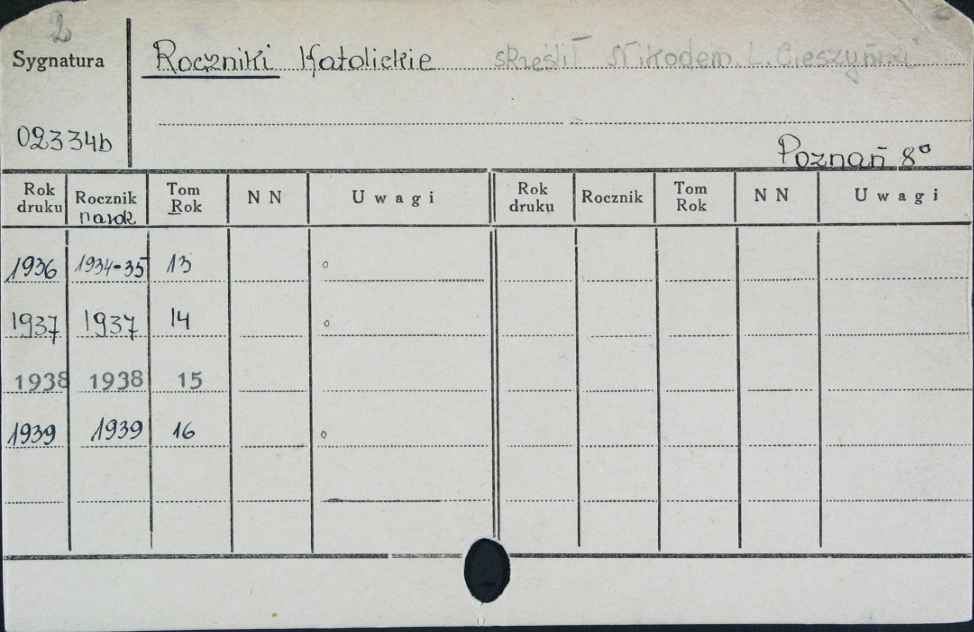 2
Sygnatura
Roczniki Katolickie skreślił Nikodem L. Cieszyński
02334b
Poznań 8°
Rok druku Rocznik na rok Tom Rok N N Uwagi Rok druku Rocznik Tom Rok N N Uwagi
1936 1934-35 13 o
1937 1937 14 o
1938 1938 15
1939 1939 16 o